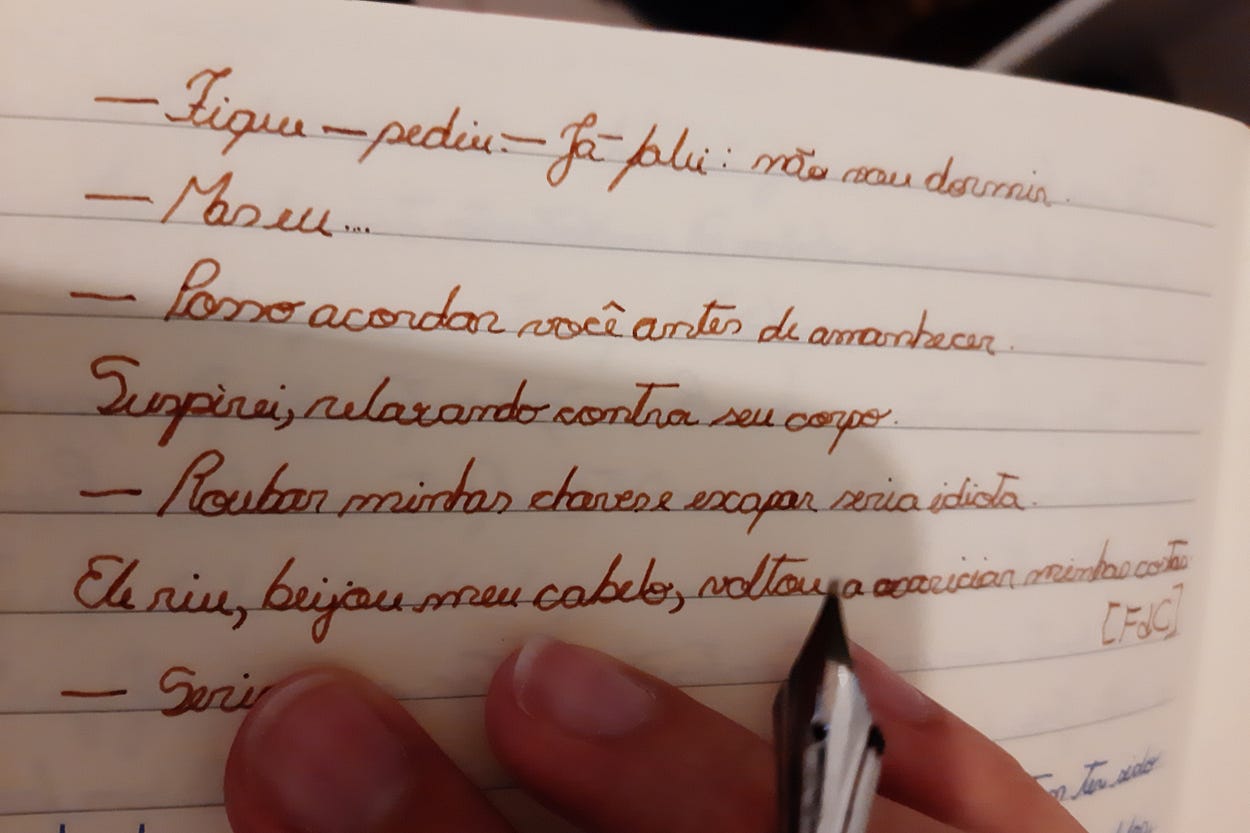 — Fique — pediu. — Já falei: não vou dormir.
— Mas eu...
— Posso acordar você antes de amanhecer.
Suspirei, relaxando contra seu corpo.
— Roubar minhas chaves e escapar seria idiota.
Ele riu, beijou meu cabelo, voltou a acariciar minhas costas
[FdC]
— Seria
ter sido